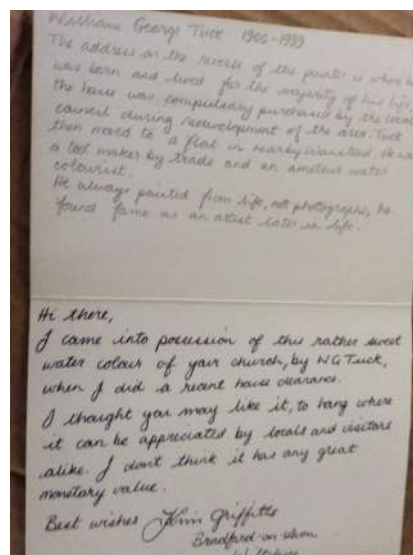 William George Tuck 1900-1999
The address on the reverse of the painter is where he
was born and lived for the majority of his life
the house was compulsory purchased by the local
council during redevelopment of the area. Tuck
then moved to a flat in nearby Wanstead. He was
a tool maker by trade and an amateur water
colourist.
He always painted from life, not photographs, he
found fame as an artist later in life.
Hi there,
I came into possession of this rather sweet
water colour of your church, by WG Tuck,
when I did a recent house clearance.
I thought you may like it, to hang where
it can be appreciated by locals and visitors
alike. I don't think it has any great
monetary value.
Best wishes Griffiths
Bradford on Avon